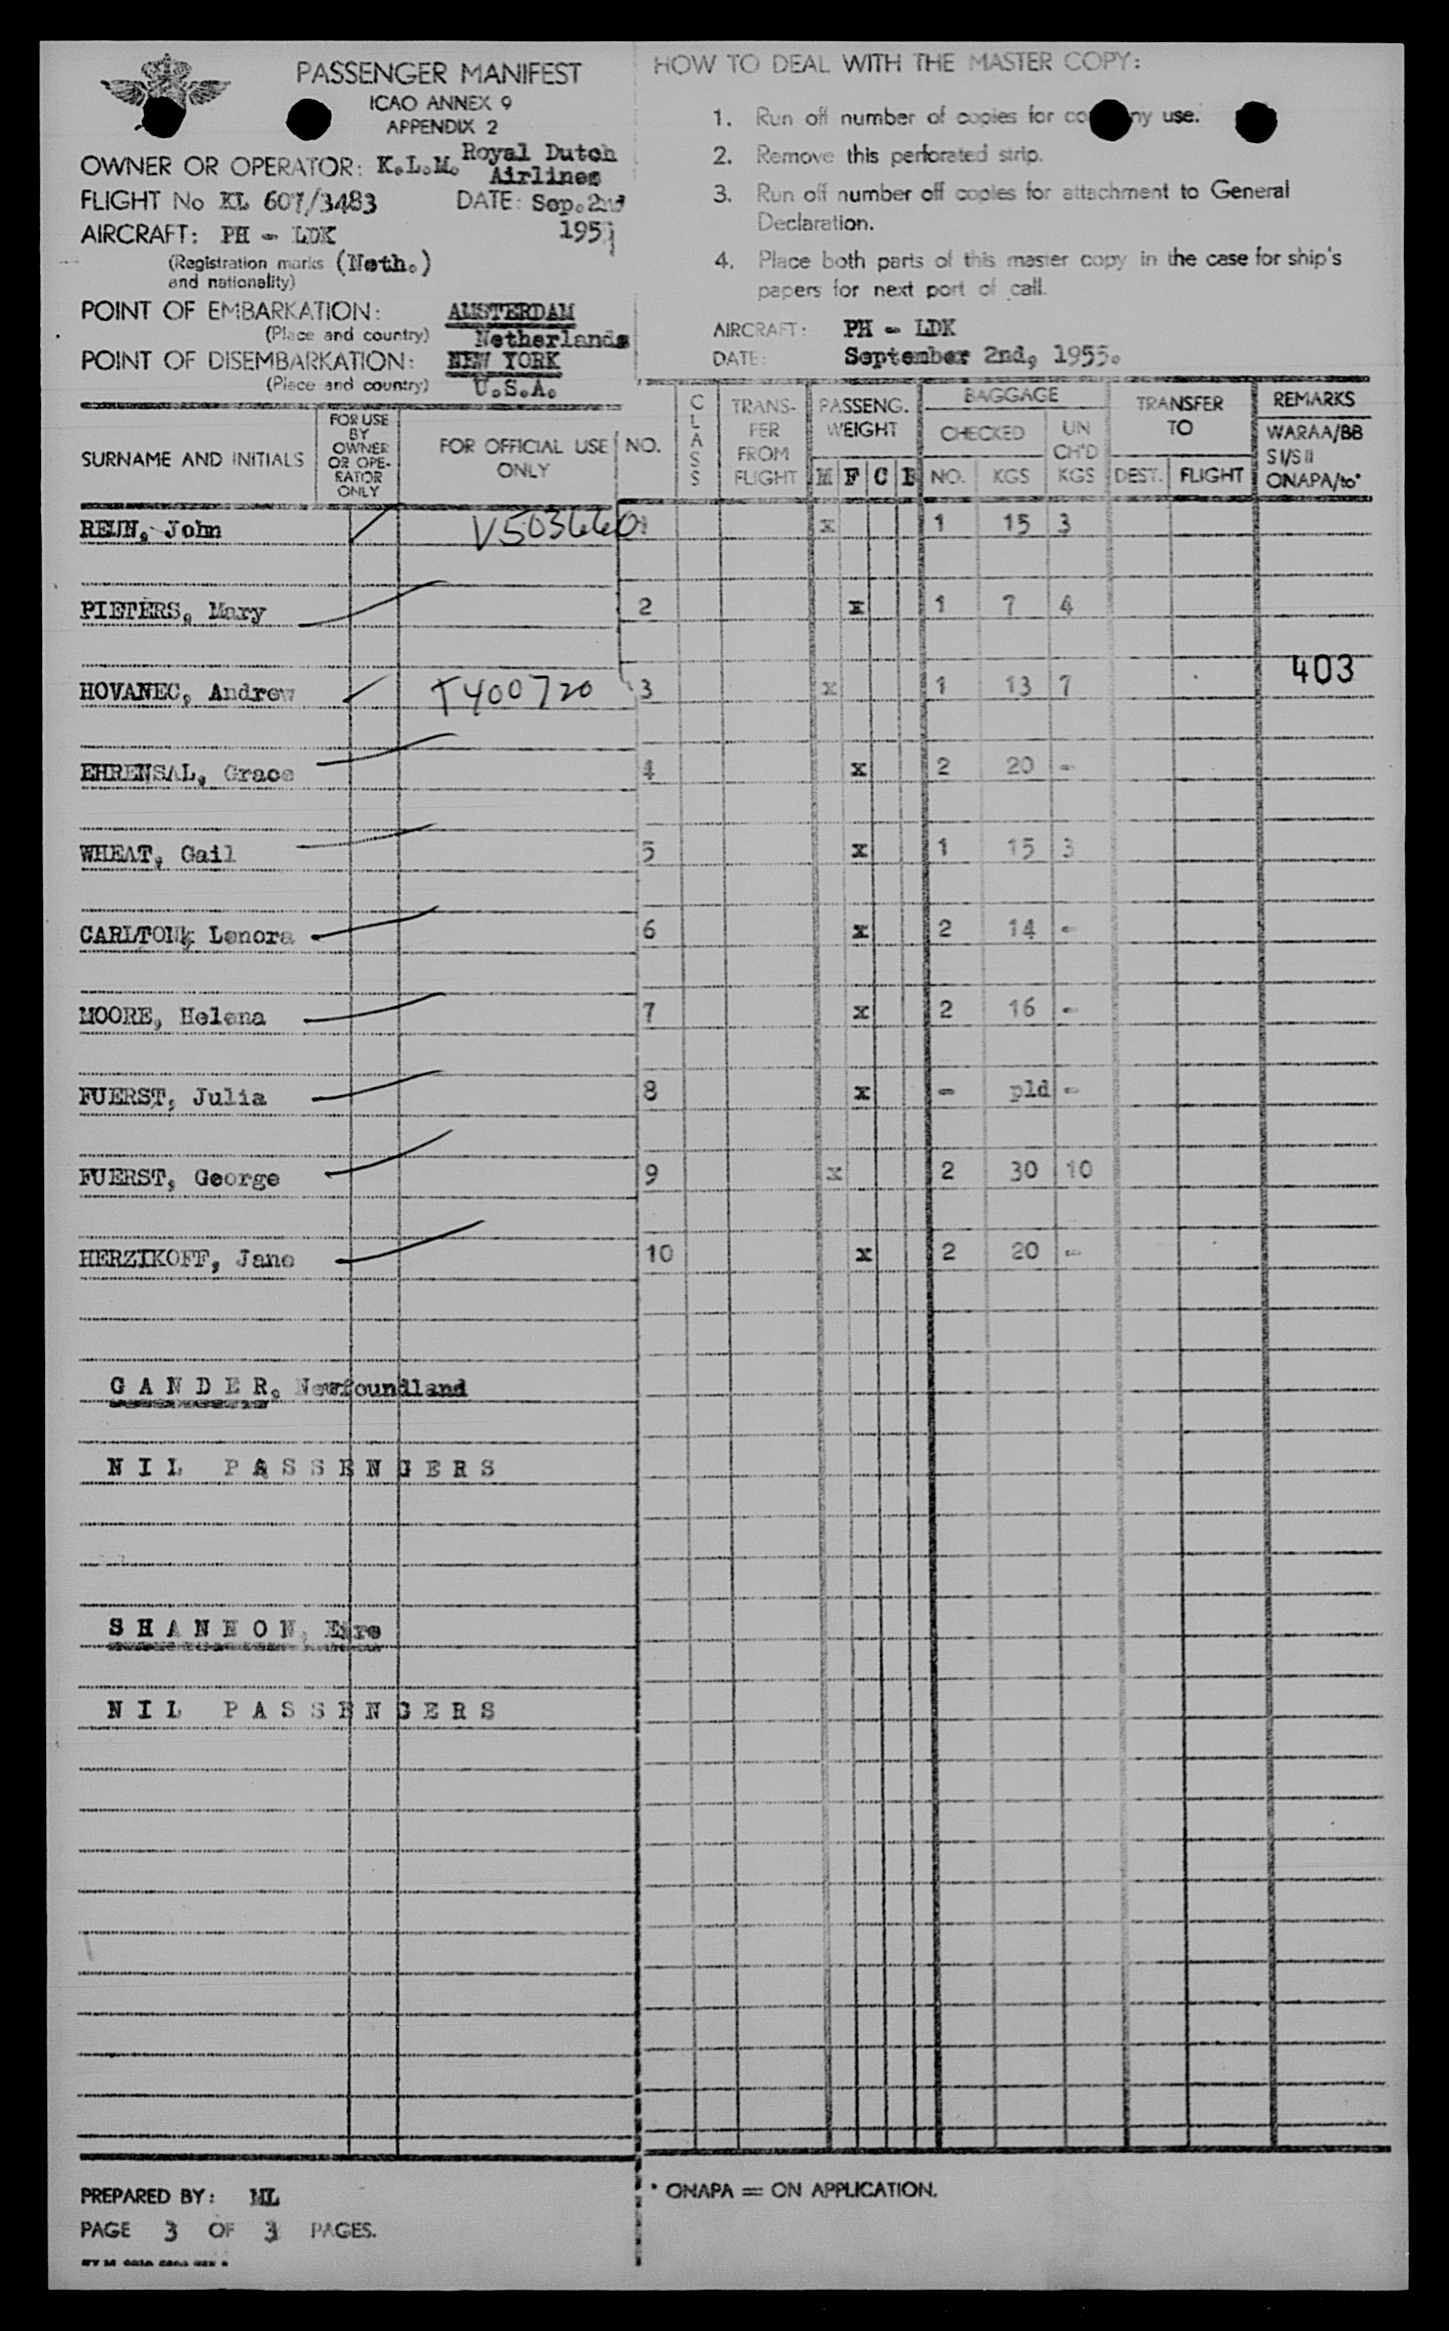 PASSENGER MANIFEST
ICAO ANNEX 9
APPENDIX 2
OWNER OR OPERATOR: K.L.M. Royal Dutch
Airlines
FLIGHT No KL 607/3483 DATE: Sep. 2nd
1955
AIRCRAFT: PH - LDK
(Registration marks (Neth.)
and nationality)
POINT OF EMBARKATION: AMSTERDAM
(Place and country) Netherlands
POINT OF DISEMBARKATION: NEW YORK
(Place and country) U.S.A.
HOW TO DEAL WITH THE MASTER COPY:
1. Run off number of copies for company use.
2. Remove this perforated strip.
3. Run off number off copies for attachment to General
Declaration.
4. Place both parts of this master copy in the case for ship's
papers for next port of call.
AIRCRAFT: PH - LDK
DATE: September 2nd, 1955.
SURNAME AND INITIALS
FOR USE
BY
OWNER
OR OPE-
RATOR
ONLY
FOR OFFICIAL USE
ONLY
NO.
CLASS
TRANS-
FER
FROM
FLIGHT
PASSENG.
WEIGHT
M F C B
BAGGAGE
CHECKED
NO. KGS
UN
CH'D
KGS
TRANSFER
TO
DEST. FLIGHT
REMARKS
WARAA/BB
SI/SII
ONAPA/to*
John V503660 1 x 1 15 3
PIETERS, Mary 2 x 1 7 4
403
HOVANEC, Andrew T400720 3 x 1 13 7
EHRENSAL, Grace 4 x 2 20 -
WHEAT, Gail 5 x 1 15 3
CARLTON, Lenora 6 x 2 14 -
MOORE, Helena 7 x 2 16 -
FUERST, Julia 8 x - pld -
FUERST, George 9 x 2 30 10
HERZIKOFF, Jane 10 x 2 20 -
G A N D E R, Newfoundland
N I L P A S S E N G E R S
S H A N N O N, Eire
N I L P A S S E N G E R S
PREPARED BY: ML
PAGE 3 OF 3 PAGES.
* ONAPA = ON APPLICATION.